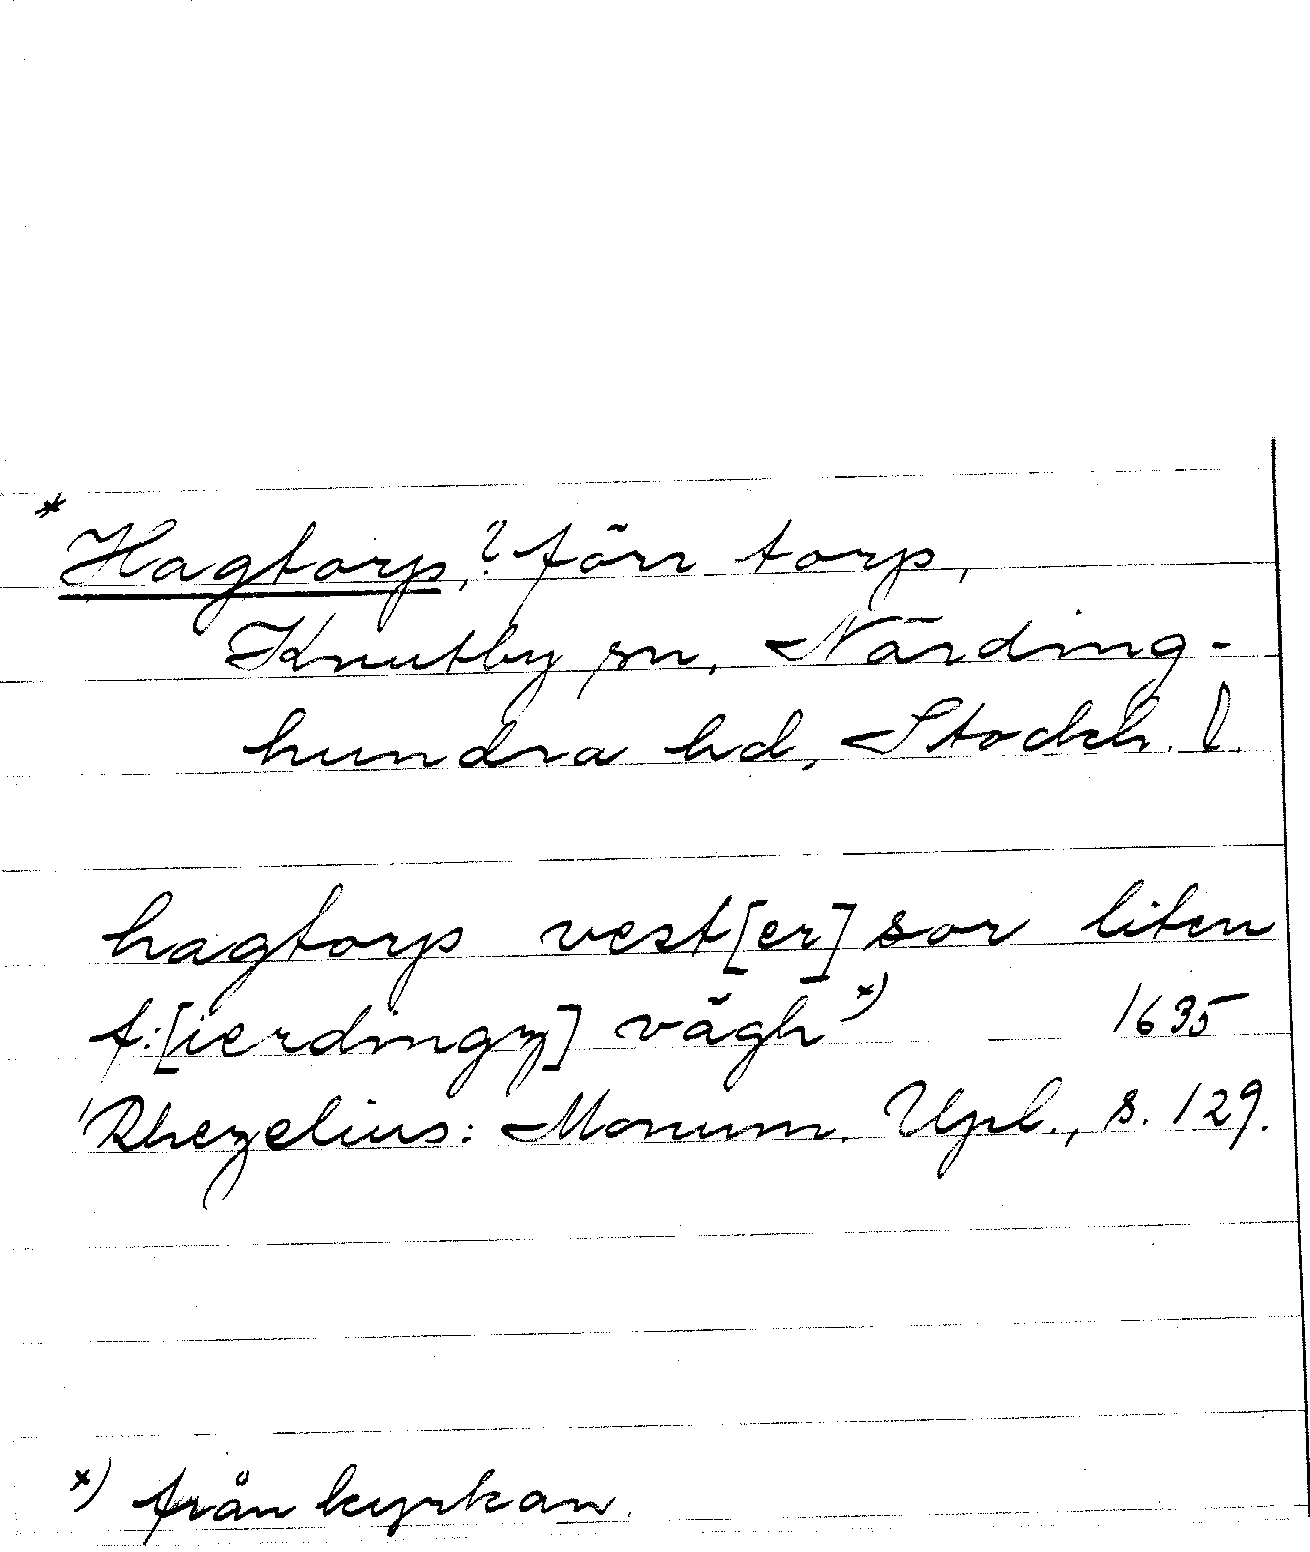 * Hagtorp,? förr torp,
Knutby sn, Närding-
hundra hd, Stockh. l.
hagtorp vest[er] sor liten
f:[ierdingz] vägh x) 1635
Rhezelius: Monum. Upl., s. 129.
x) från kyrkan.